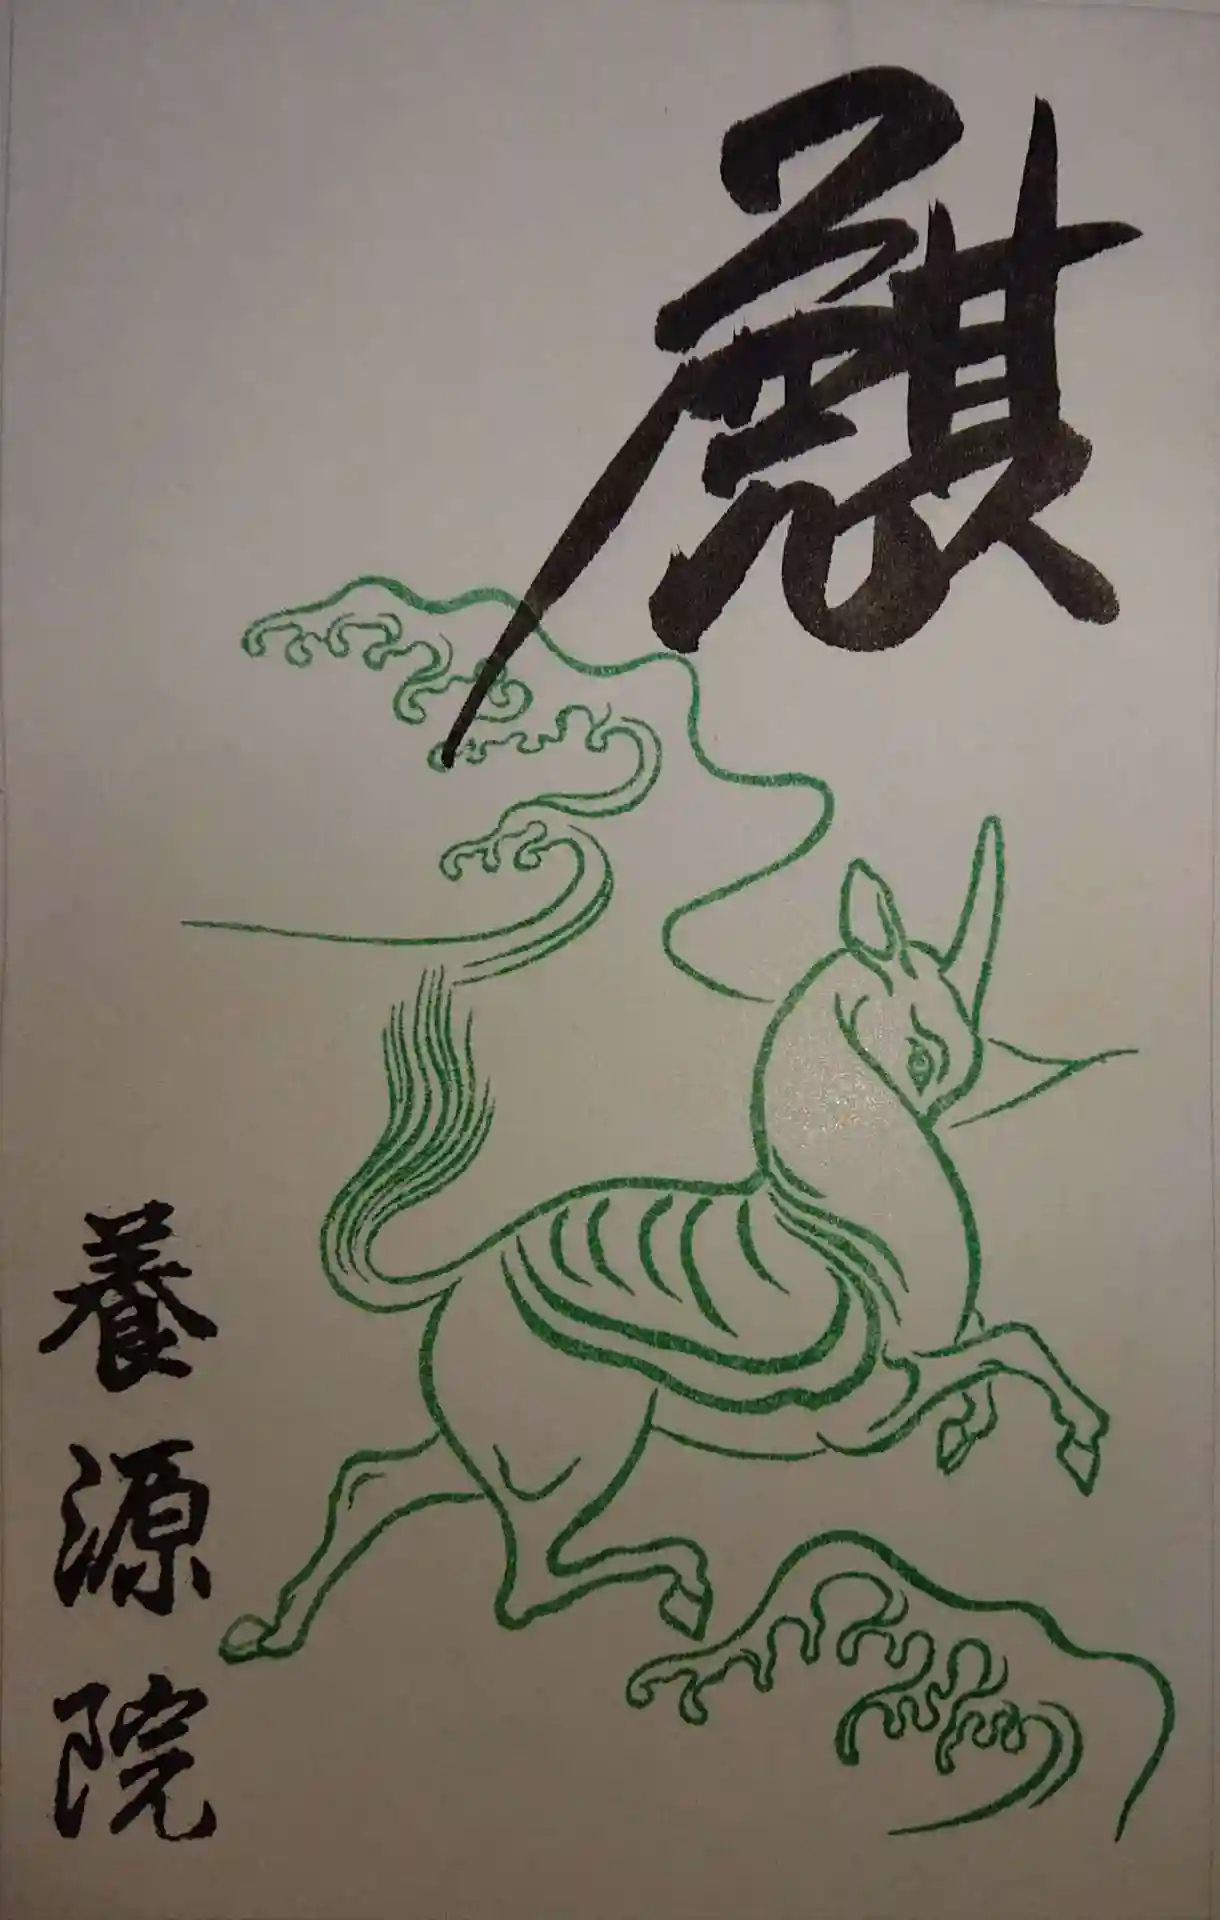 麒
養源院